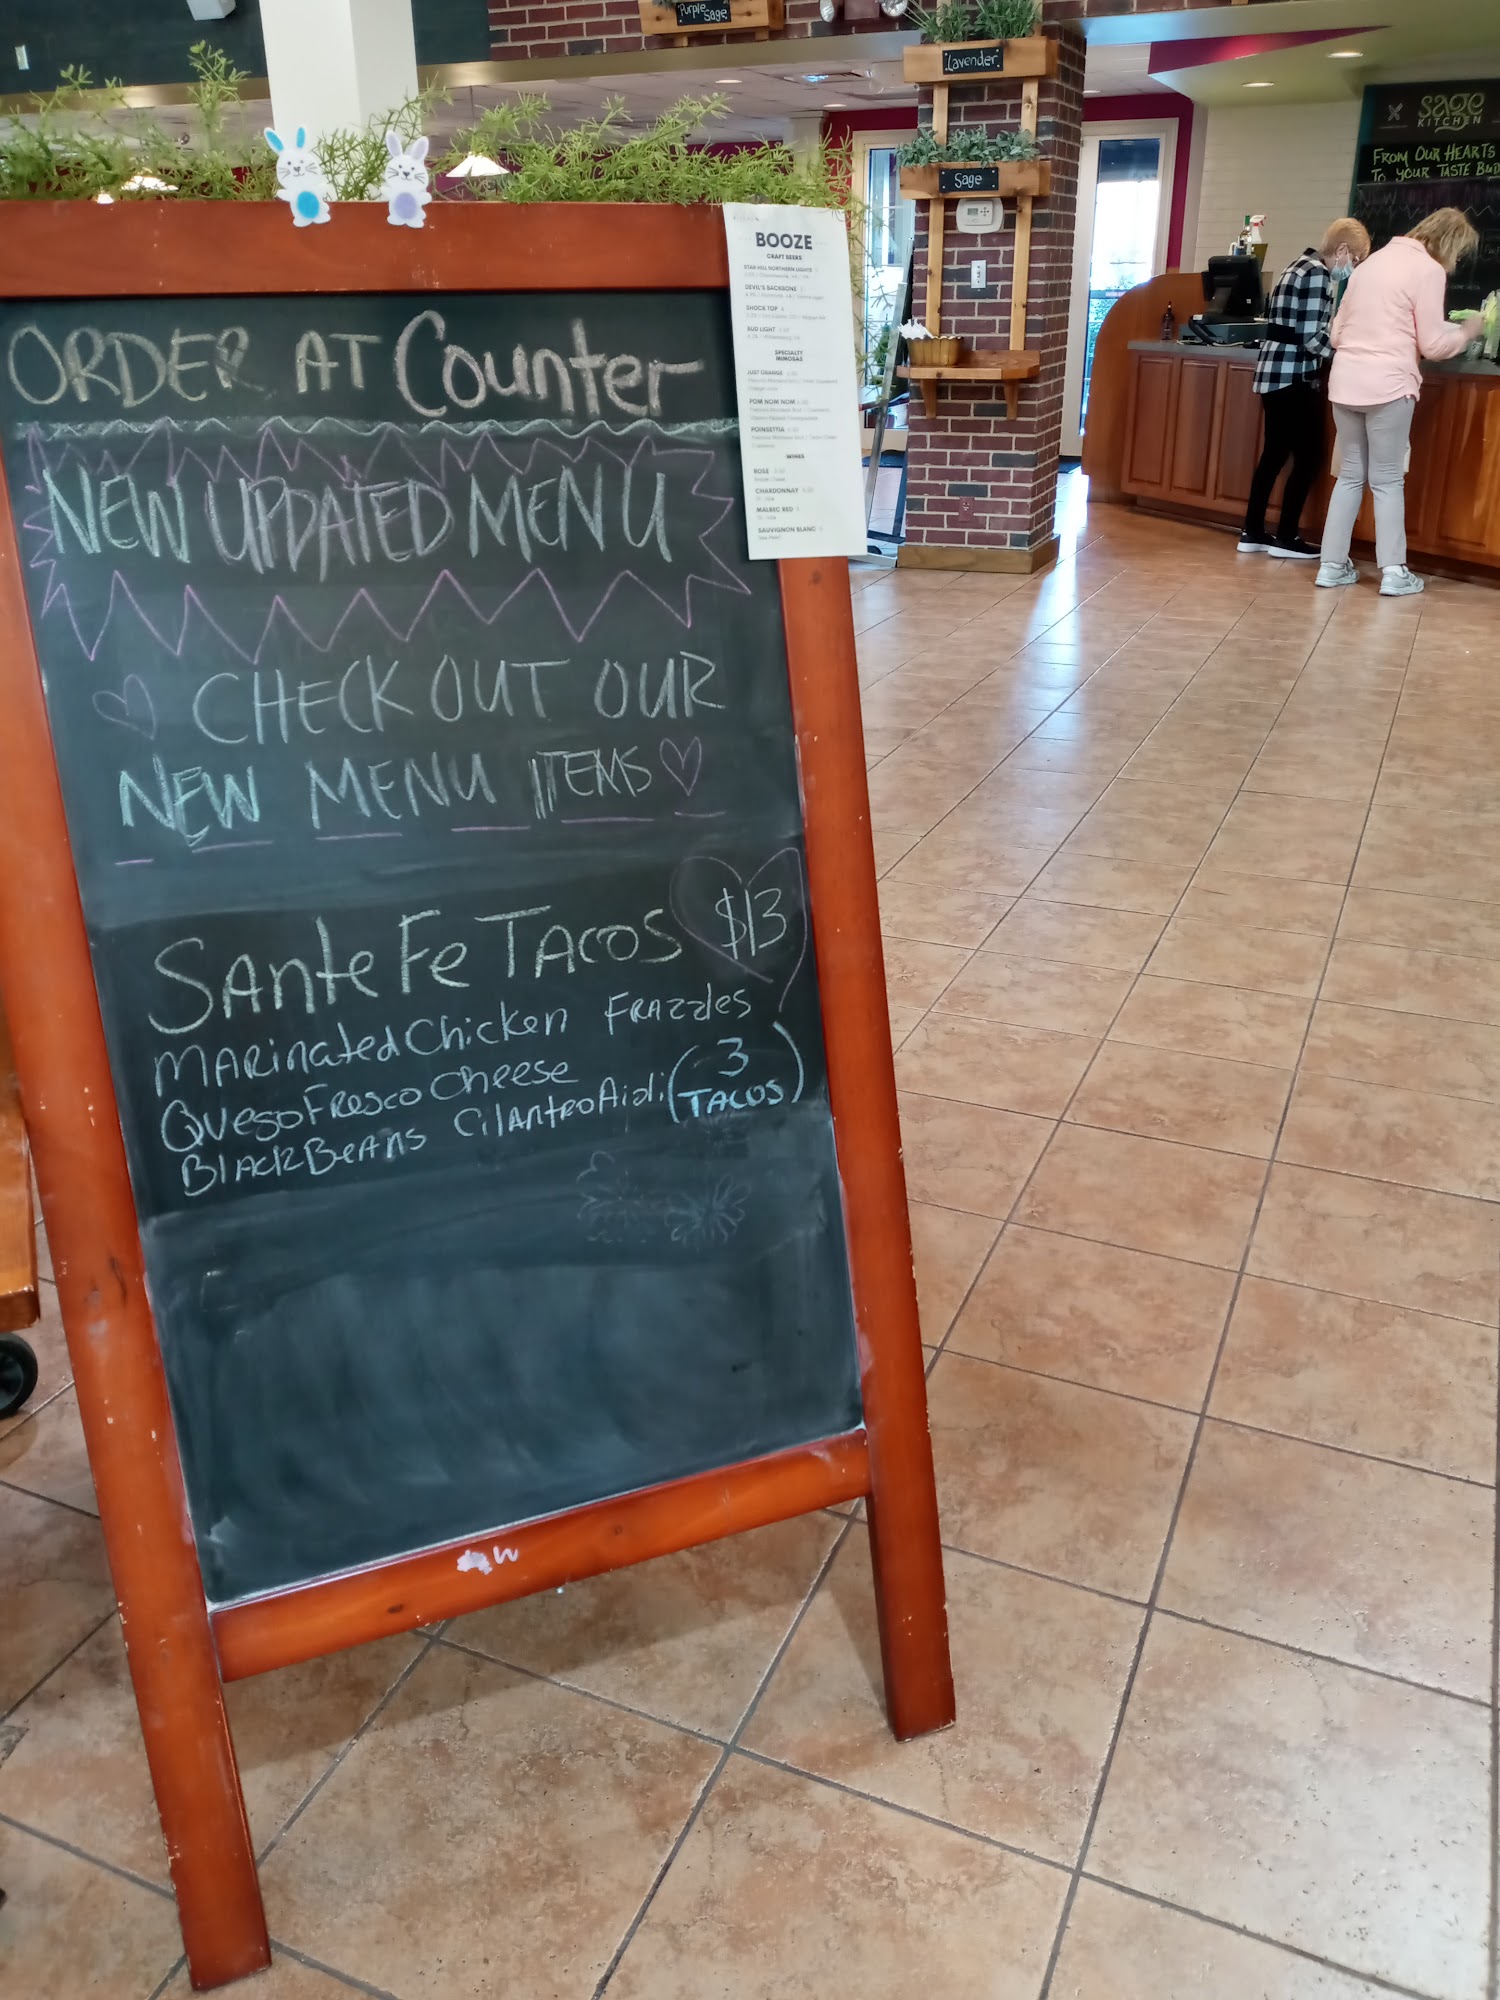 Purple
Sage
Lavender
Sage
Sage
KITCHEN
FROM OUR HEARTS
TO YOUR TASTE BUD
NEW
ORDER AT Counter
NEW UPDATED MENU
CHECK OUT OUR
NEW MENU ITEMS
SANte Fe TACOS $13
MARinated Chicken FRAzzles
Queso Fresco Cheese
Black Beans Cilantro Aioli (3 TACOS)
BOOZE
CRAFT BEERS
STAR HILL NORTHERN LIGHTS
DEVIL'S BACKBONE
SHOCK TOP
BUD LIGHT
SPECIALTY
MIMOSAS
JUST ORANGE
POM NOM NOM
POINSETTIA
WINES
ROSE
CHARDONNAY
MALBEC RED
SAUVIGNON BLANC